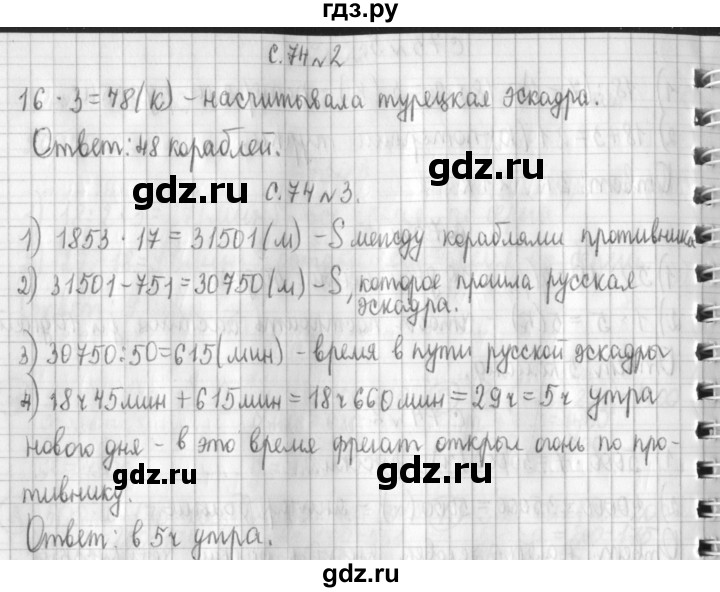 гдз.ру
с.74 №2
16 · 3 = 48 (к) - насчитывала турецкая эскадра.
Ответ: 48 кораблей.
gdz.ru
gdz.ru
с.74 №3.
1) 1853 · 17 = 31501 (м) - S между кораблями противника
2) 31501 - 751 = 30750 (м) - S, которое прошла русская
эскадра.
3) 30750 : 50 = 615 (мин) - время в пути русской эскадры
4) 18ч 45мин + 615мин = 18ч 660мин = 29ч = 5ч утра
нового дня - в это время фрегат открыл огонь по про-
gdz.ru
gdz.ru
тивнику.
Ответ: в 5ч утра.
gdz.ru